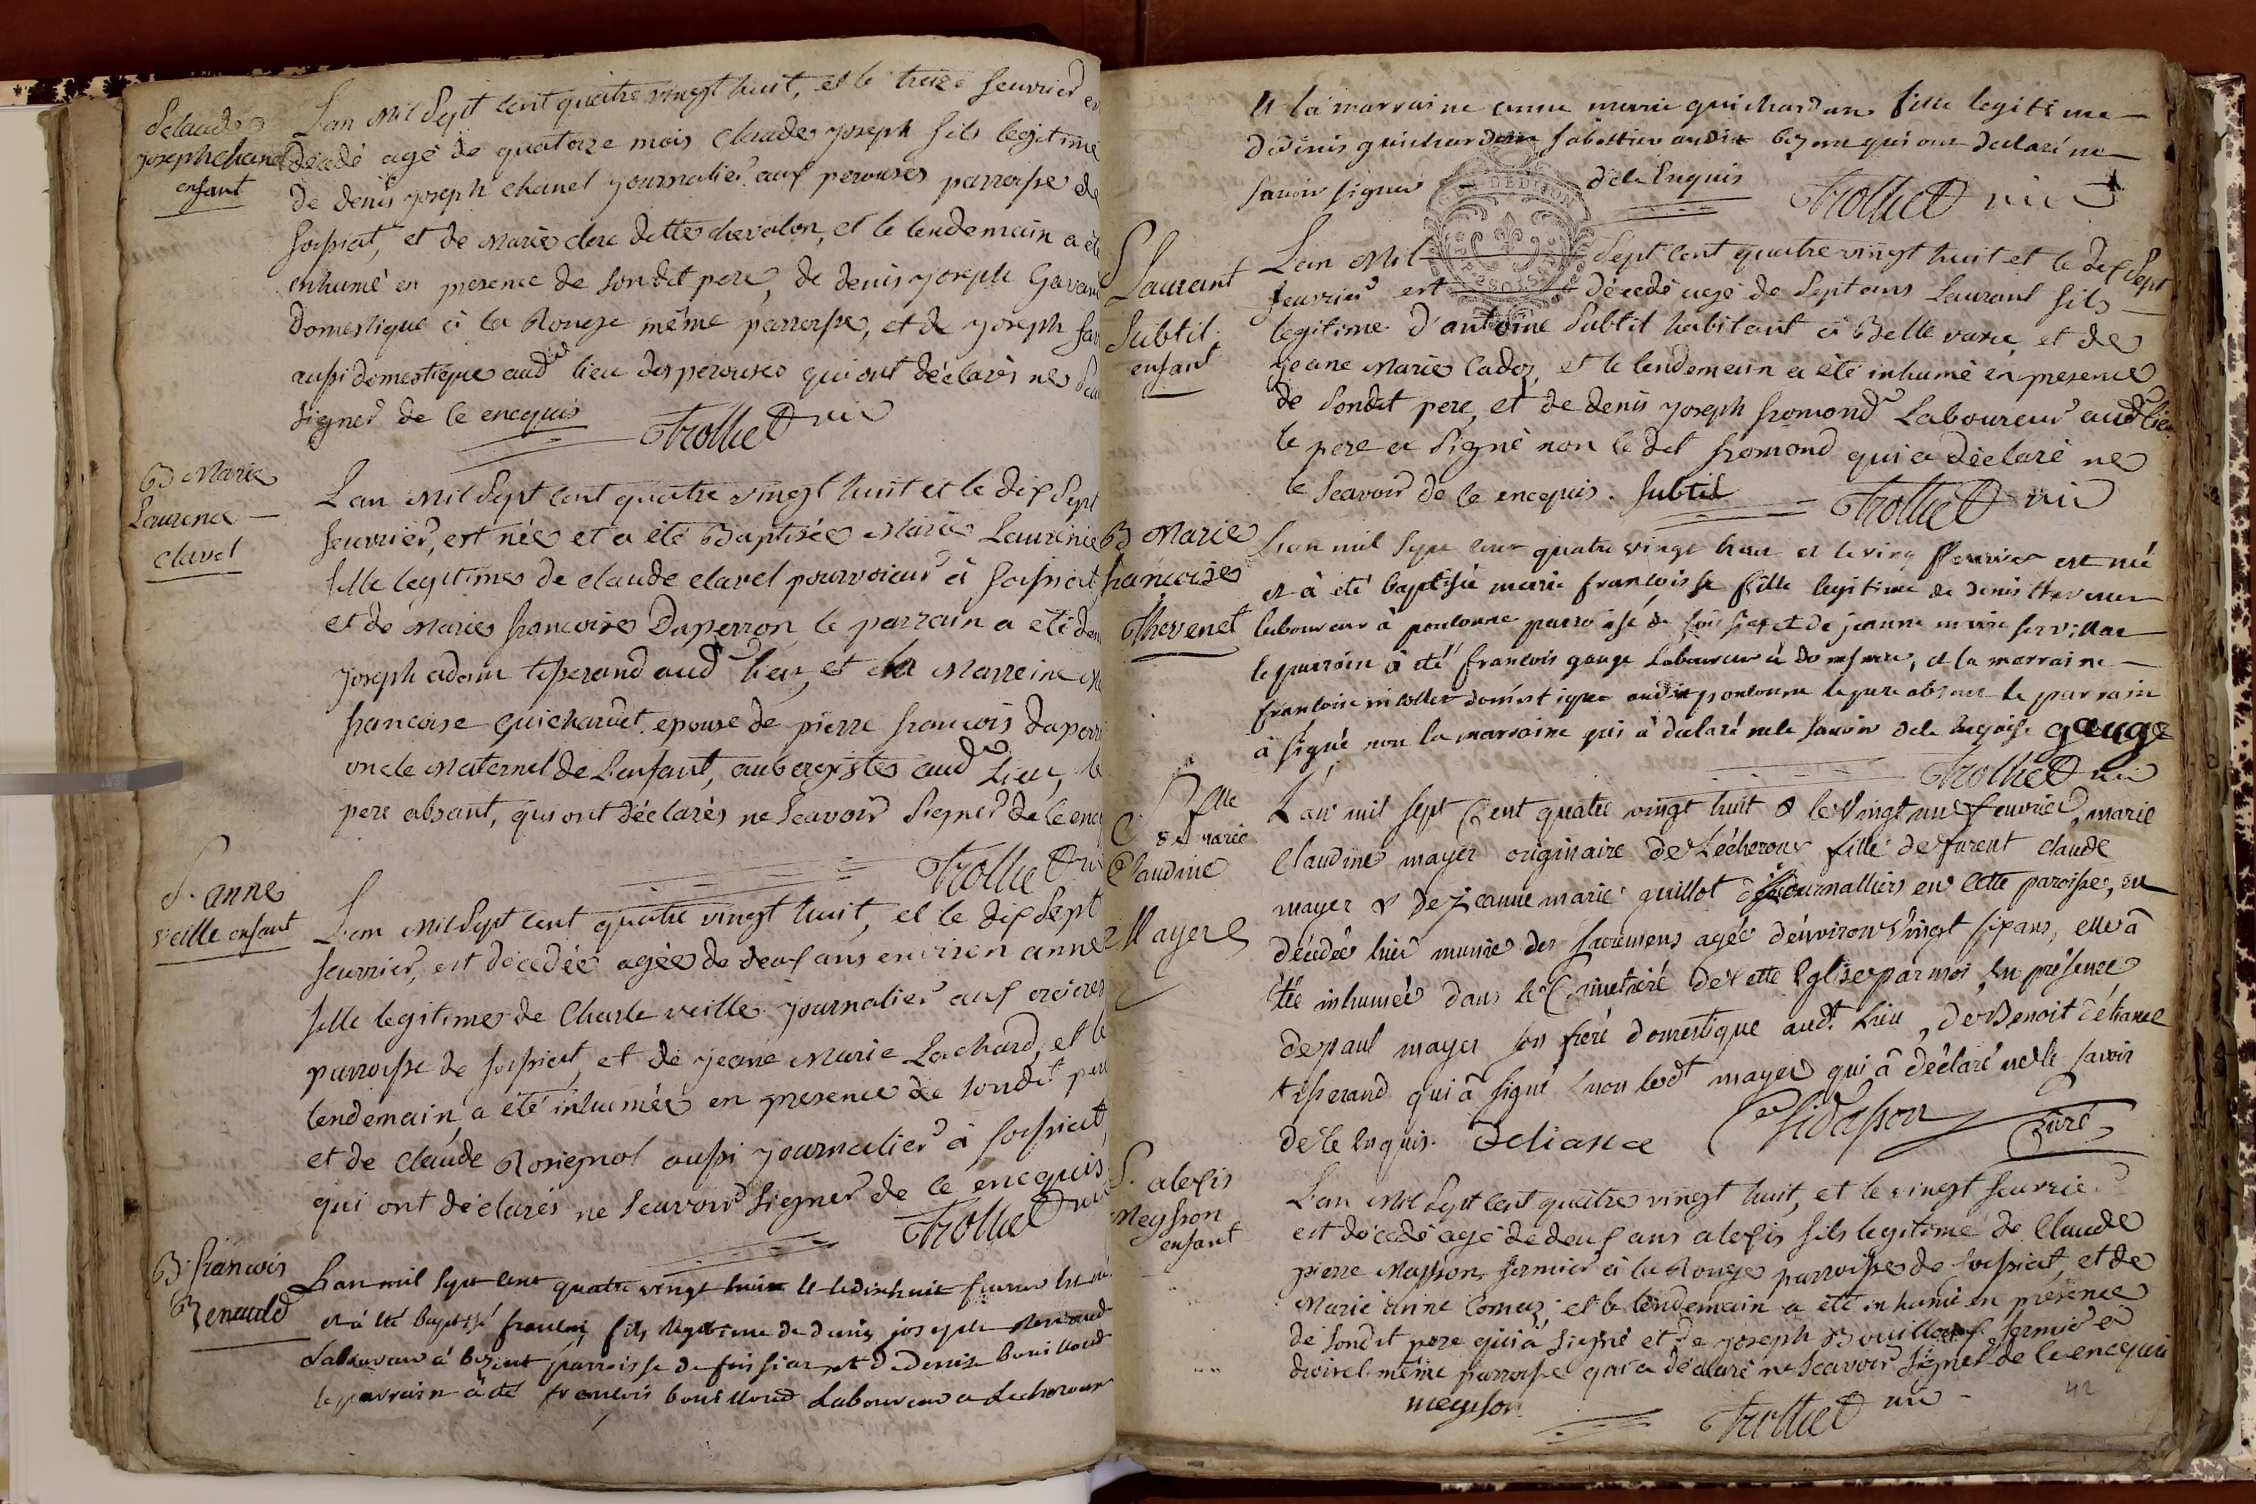 S. claude
joseph chanel
enfant
L'an Mil Sept Cent quatre vingt huit, et le treize feuvrier e
décédé agé de quatorze mois Claude joseph fils legitime
de denis joseph chanel journalier aux perouses parroisse de
foissiat, et de Marie clere ditte chevalon, et le lendemain a été
inhumé en presence de sondit pere, de denis joseph Gavand
domestique à la Rouge même parroisse, et de joseph
aussi domestique aud lieu des perouses qui ont déclarés ne Sca
Signer de ce enequis Trollied vic
B Marie
Laurence
clavel
L'an Mil Sept Cent quatre vingt huit et le dix Sept
feuvrier, est née et a été Baptisée Marie Laurence
fille legitime de claude clavel pourvoieur à foissiat
et de Marie francoise Duperron le parrain a été den
joseph adam tisserand aud lieu, et la Marreine M
francoise Guichardet epouse de pierre francois duperr
oncle Maternel de L'enfant, aubergistes aud Lieu, le
pere absant, qui ont déclarés ne Scavoir Signer de ce ene
Trollied vi
S. anne
veille enfant
L'an Mil Sept Cent quatre vingt huit, et le dix Sept
feuvrier, est décedée agée de deux ans environ anne
fille legitime de Charle veille journalier aux
parroisse de foissiat, et de jeane Marie Lachard, et le
lendemain a été inhumée en presence de sondit pere
et de claude Rosignol aussi journalier à foissiat,
qui ont déclarés ne Scavoir Signer de ce enequis
Trollied vic
B. francois
Renauld
L'an mil Sept cent quatre vingt huit et le dix huit fevrier est né
et à été baptisé francois fils legitime de denis joseph Renaud
Laboureur à bezent parroisse de foissiat et de denise bouilloud
le parrain à été francois bouilloud Laboureur a Lecheroux
et la marraine anne marie guichardan fille legitime
de denis guichardan Sabottier audit bezene qui ont declaré ne
savoir signer de ce Enquis Trollied vic
S
Laurent
Subtil
enfant
L'an Mil Sept Cent quatre vingt huit et le dix Sept
feuvrier est décedé agé de Sept ans Laurent fils
legitime d'antoine Subtil habitant à Belle vavre et de
jeane Marie Cadoz, et le lendemain a été inhumé en presence
de Sondit pere, et de denis joseph fromond Laboureur aud lieu
le pere a Signé non le dit fromond qui a déclaré ne
le Scavoir de ce enequis. Subtil Trollied vic
B Marie
francoise
Thevenet
L'an mil Sept cent quatre vingt huit et le ving fevrier est née
et à été baptisée marie francoisse fille legitime de denis thevenet
laboureur à ponloune parroisse de foissiat et de jeanne marie servillat
le parrain à été francois gauge Laboureur à domsure, et la marraine
francoise domestique audit ponloune le pere absent le parrain
à signé non la marraine qui à declaré ne le savoir de ce enquise gauge
Trollied vic
S flle
Marie
Claudine
Mayer
L'an mil sept Cent quatre vingt huit & le vingt un feuvrier, marie
Claudine mayer originaire de Lécheroux fille de furent claude
mayer & de jeanne marie guillot journalliers en Cette paroisse, eu
décédée hier munie des sacremens agée d'environ vingt six ans, elle à
été inhumée dans le Cimetieré de cette Eglise par moi, en présence
de paul mayer son frere domestique audt. Lieu, de Benoit déliance
tisserand qui à signé & non ledt mayer qui à déclaré ne le savoir
de ce Enquis. Deliance Curé
S. alexis
Meysson
enfant
L'an Mil Sept Cent quatre vingt huit, et le vingt feuvrier
est décedé agé de deux ans alexis fils legitime de Claude
pierre Maysson fermier à la Rouge parroisse de foissiat, et de
Marie anne Comaz, et le lendemain a été inhumé en présence
de Sondit pere qui a Signé et de joseph Bouilloux fermier à
même parroisse qui a déclaré ne Scavoir Signer de ce enequis
meysson Trollied vic
42